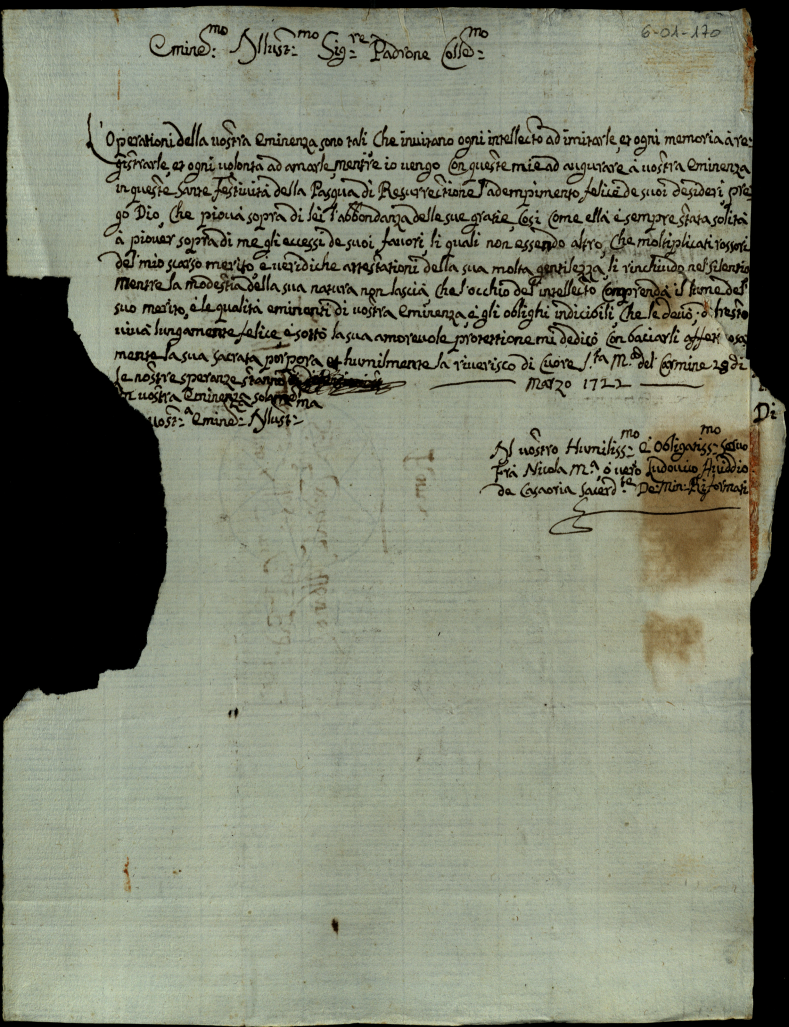 6-01-170
Emined:mo Illust:mo Sig:re Padrone Colled:mo
L'Operationi della vostra Eminenza sono tali Che invitano ogni intellecto ad imitarle, et ogni memoria à re-
gistrarle, et ogni volontà ad amarle, mentre io vengo Con queste mie ad augurare à vostra Eminenza
in queste Sante Festività della Pasqua di Resurrectione l'adempimento felice de suoi desideri pre-
go Dio, Che piova sopra di lei l'abbondanza delle sue gratie, Così Come ella è sempre stata solita
à piover sopra di me gli ecessi de suoi favori, li quali non essendo altro, Che moltiplicati rossori
del mio scarso merito, è veridiche attestationi della sua molta gentilezza, li rinchiudo nel silentio
Mentre la modestia della sua natura non lascia Che l'occhio del intellecto Comprenda il lume del
suo merito, è le qualità eminenti di vostra Eminenza, è gli oblighi indicibili Che le devo, d'
viva lungamente felice, è sotto la sua amorevole protettione mi dedico Con baciarli
mente la sua sacrata porpora et humilmente la riverisco di Cuore S.ta M.a del Carmine 28 di
Marzo 1722
le nostre speranze stanno
in vostra Eminenza solam
vost:a Emined: Illust:ma
Di
Al vostro Humiliss:mo è Obligatiss:mo Servo
Frà Nicola M.a ò vero Ludovico
de Casoria Sacerd:te De Min: Riformati